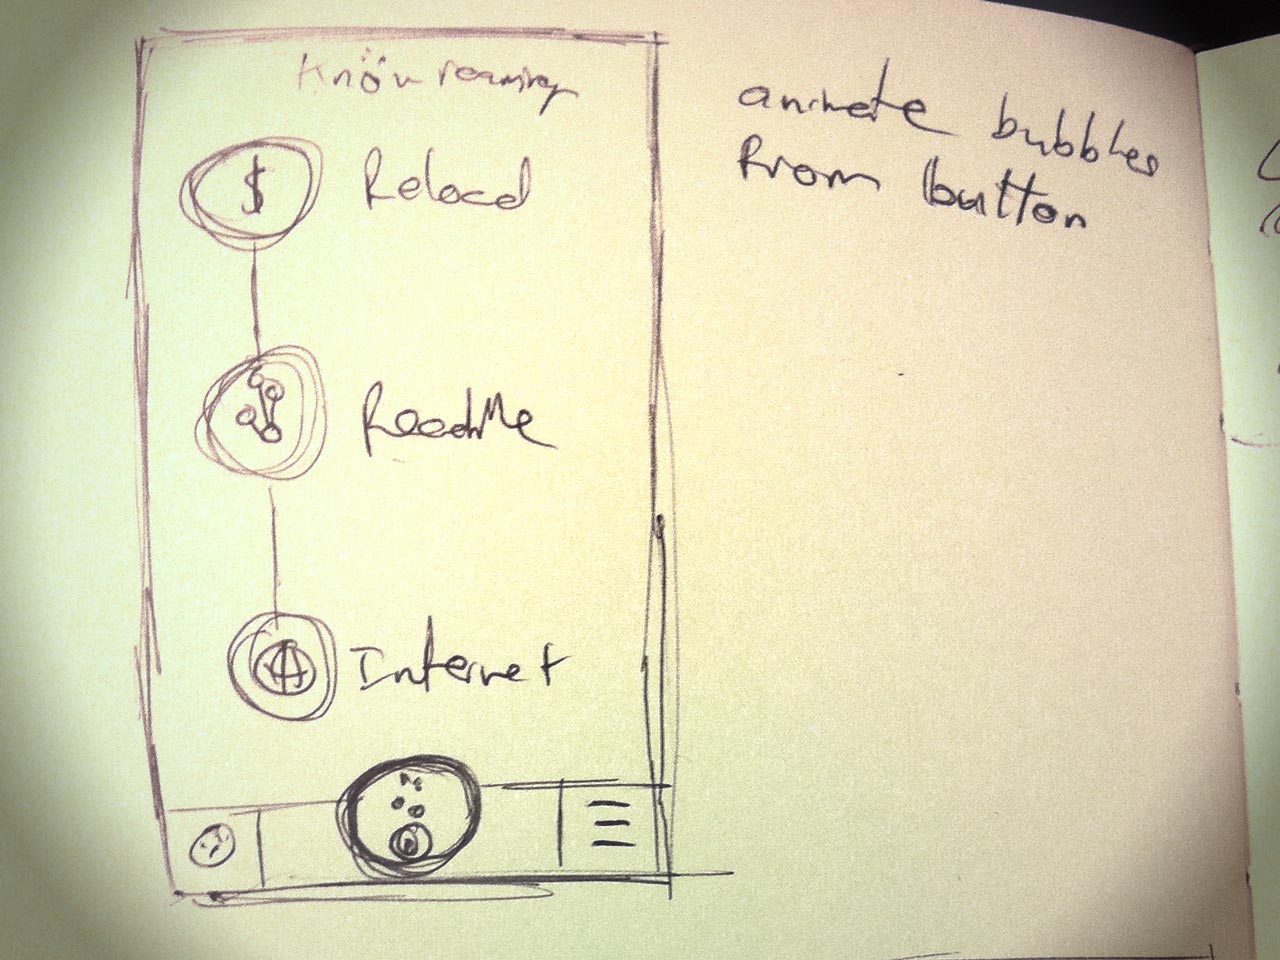 Knöw roaming
$ Reload
ReadMe
Internet
animate bubbles
from button